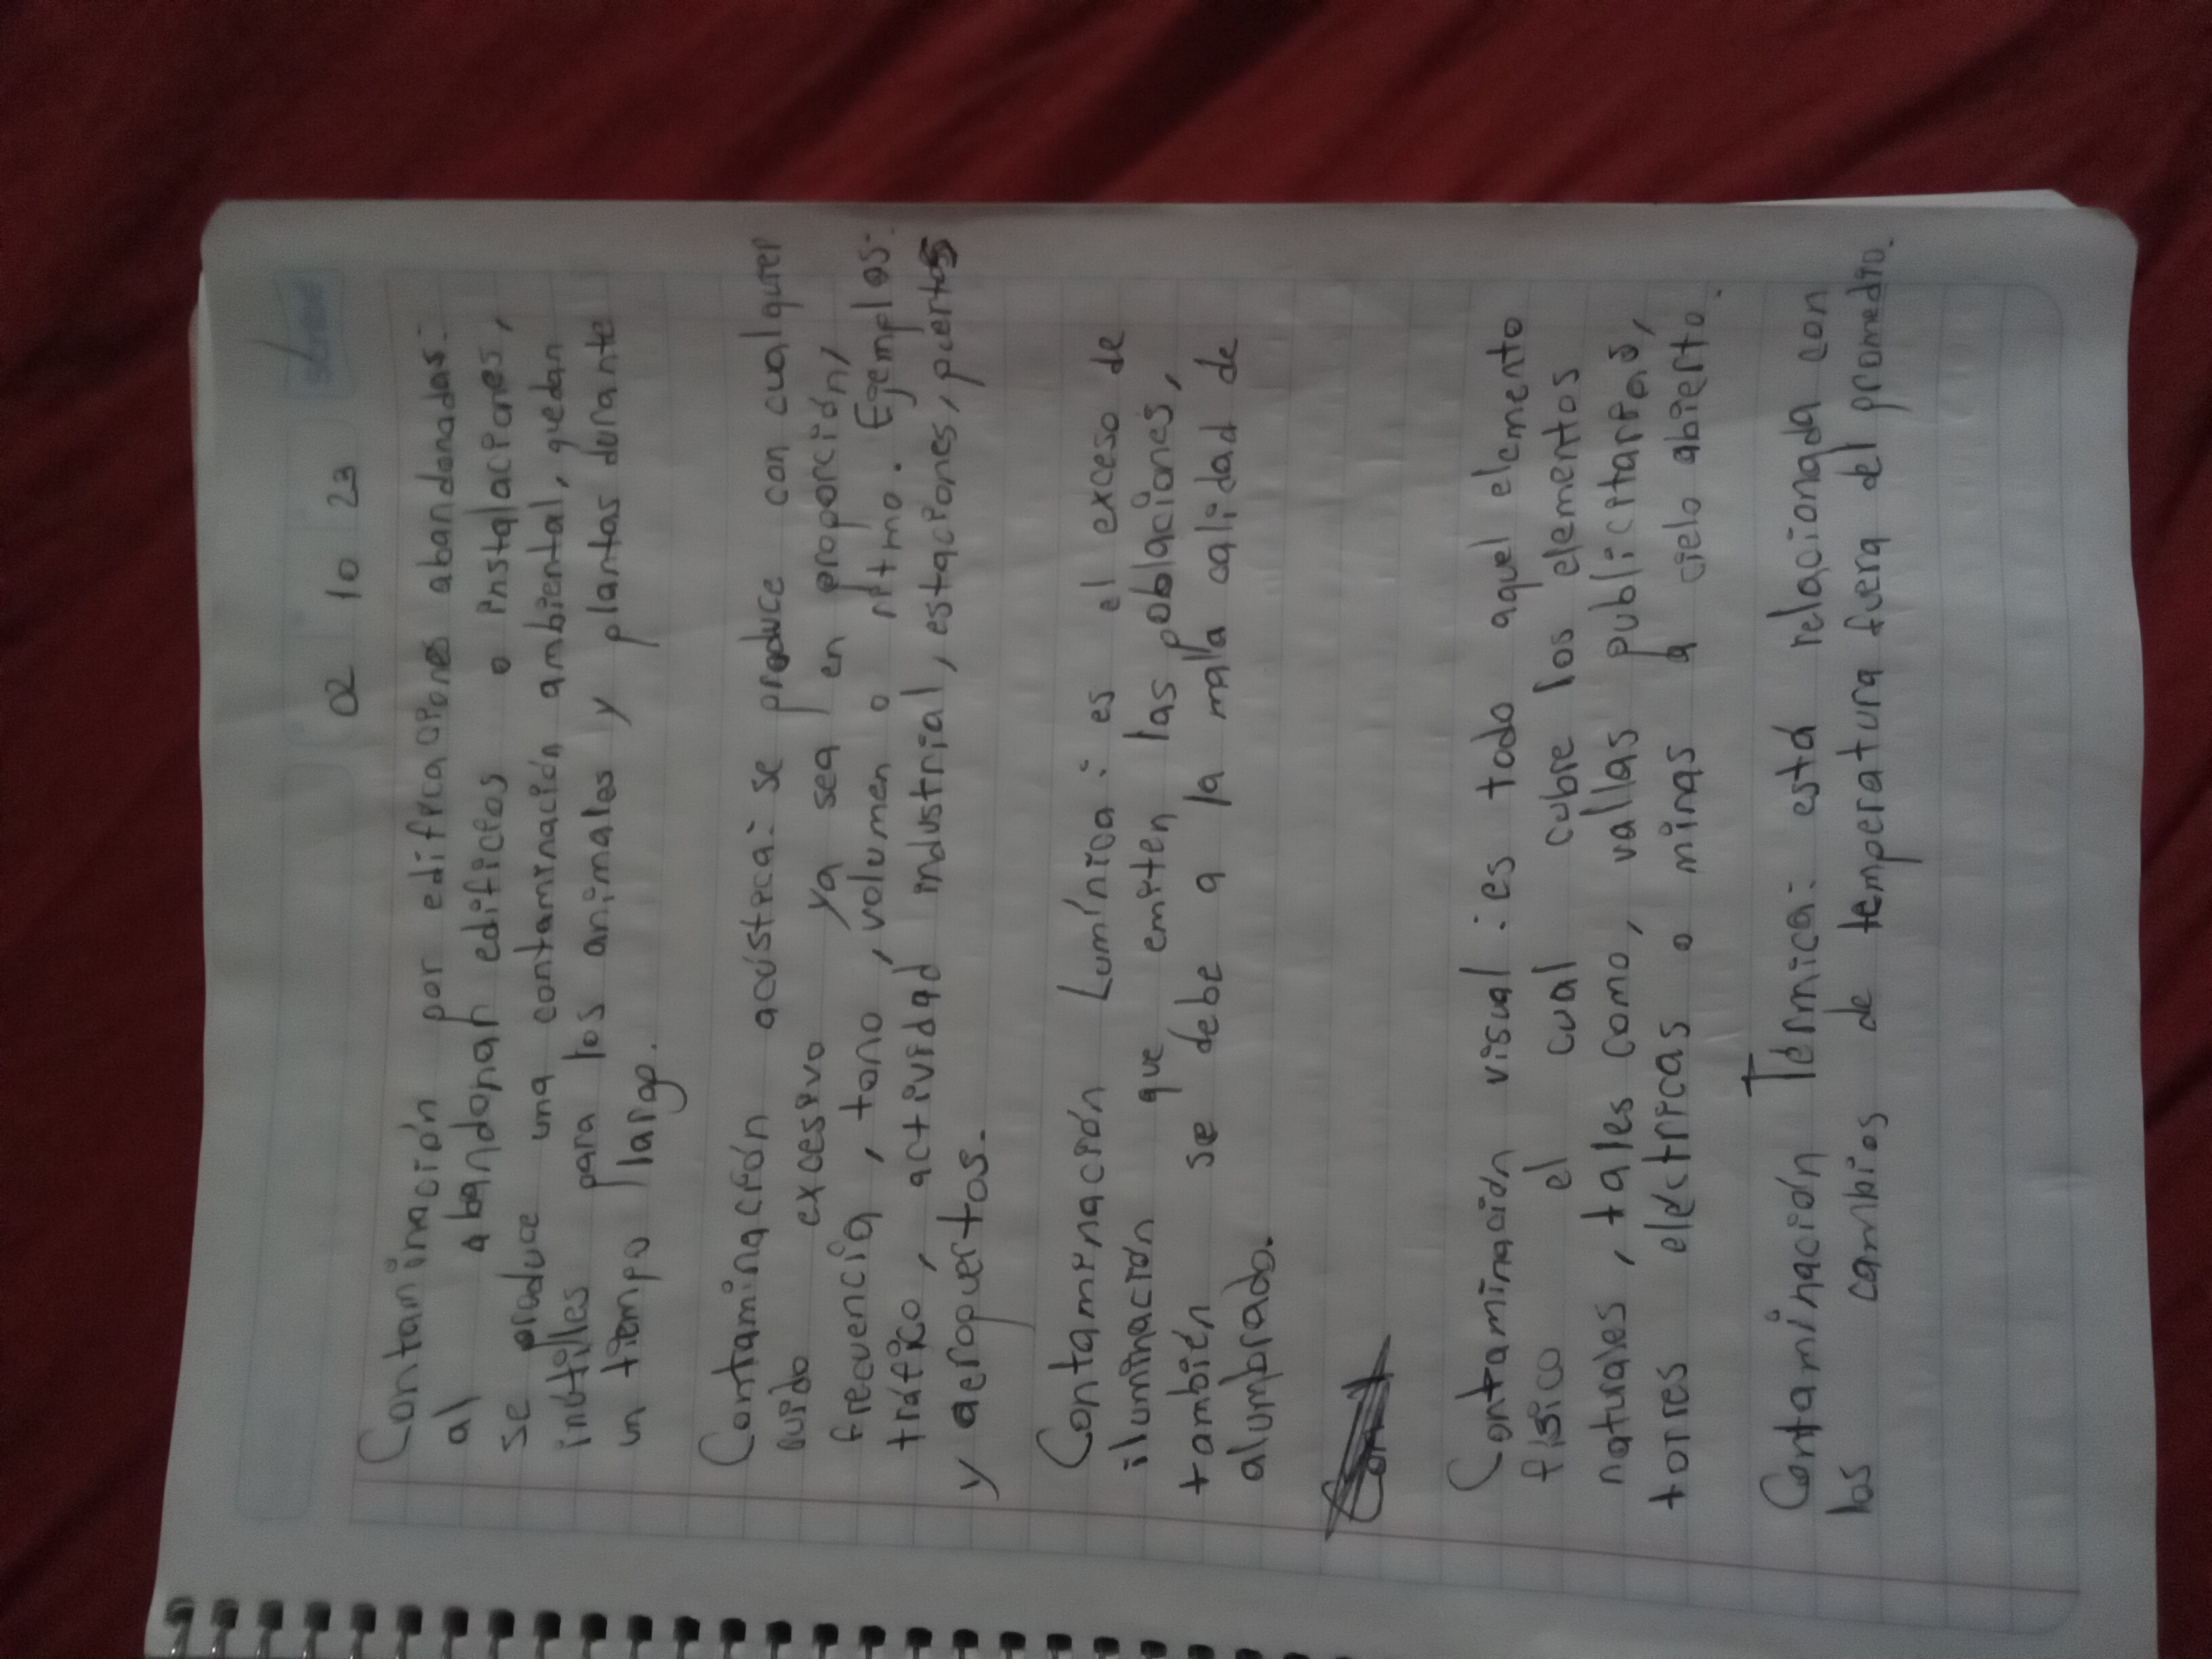 02 10 23
Contaminación por edificaciones abandonadas:
al abandonar edificios o instalaciones,
se produce una contaminación ambiental, quedan
inútiles para los animales y plantas durante
un tiempo largo.
Contaminación acústica: se produce con cualquier
ruido excesivo ya sea en proporción,
frecuencia, tono, volumen o ritmo. Ejemplos:
tráfico, actividad industrial, estaciones, puertos
y aeropuertos.
Contaminación Lumínica: es el exceso de
iluminación que emiten las poblaciones,
también se debe a la mala calidad de
alumbrado.
Contaminación visual: es todo aquel elemento
físico el cual cubre los elementos
naturales, tales como, vallas publicitarias,
torres eléctricas o minas a cielo abierto.
Contaminación Térmica: está relacionada con
los cambios de temperatura fuera del promedio.